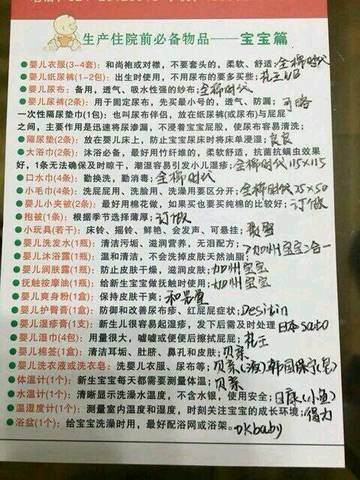 生产住院前必备物品——宝宝篇
婴儿衣服(3-4套): 和尚袍或对襟, 不要套头的, 柔软、舒适; 全棉时代
婴儿纸尿裤(1-2包): 出生时使用, 不用尿布的要多买些; 花王NB
婴儿尿布: 备用, 透气、吸水性强的纱布; 全棉时代
婴儿尿裤(2条): 用于固定尿布, 先买最小号的, 透气、防漏; 可略
一次性隔尿垫巾(1包): 也叫尿布伴侣, 放在纸尿裤(或尿布)与屁屁
之间, 主要作用是迅速将尿渗漏, 不浸着宝宝屁股, 使尿布容易清洗;
隔尿垫(2条): 放在婴儿床上, 防止宝宝尿床时将床单浸湿; 良良
大浴巾(2条): 沐浴必备, 最好用竹纤维的, 柔软舒适, 抗菌抗螨虫效果
好, 1条无法确保及时晾干, 潮湿容易引发小儿湿疹; 全棉时代115x115
口水巾(4条): 勤换洗, 勤消毒; 全棉时代
小毛巾(4条): 洗屁屁用、洗脸用、洗澡用要区分开; 全棉时代25x50
婴儿小夹被(2条): 最好用棉花做, 如果买也要买纯棉的比较好; 订做
抱被(1条): 根据季节选择薄厚; 订做
小玩具(若干): 床铃、摇铃、鲜艳、会发声、可悬挂;
婴儿洗发水(1瓶): 清洁污垢、滋润营养, 无泪配方; 加州宝宝二合一
婴儿沐浴露(1瓶): 温和清洁, 不会洗掉皮肤天然油脂;
婴儿润肤露(1瓶): 防止皮肤干燥, 滋润皮肤; 加州宝宝
抚触按摩油(1瓶): 给新生宝宝做抚触时使用; 加州宝宝
婴儿爽身粉(1盒): 保持皮肤干爽; 和光堂
婴儿护臀膏(1盒): 防御和改善尿布疹、红屁屁症状; Desitin
婴儿湿疹膏(1支): 新生儿很容易起湿疹, 发下后需及时处理 日本sato
婴儿湿巾(4包): 用量很大, 嘘嘘或便便后擦拭屁屁; 花王
婴儿棉签(1盒): 清洁耳垢、肚脐、鼻孔和皮肤; 贝亲
婴儿洗衣液或洗衣皂: 洗婴儿衣服、尿布等; 贝亲(液)韩国保宁(皂)
体温计(1个): 新生宝宝每天都需要测量体温; 贝亲
水温计(1个): 清晰显示洗澡水温度, 不含水银, 使用安全; 日康(小鱼)
温湿度计(1个): 测量室内温度和湿度, 时刻关注宝宝的成长环境; 得力
浴盆(1个): 给宝宝洗澡时用, 最好配浴网或浴架。 okbaby